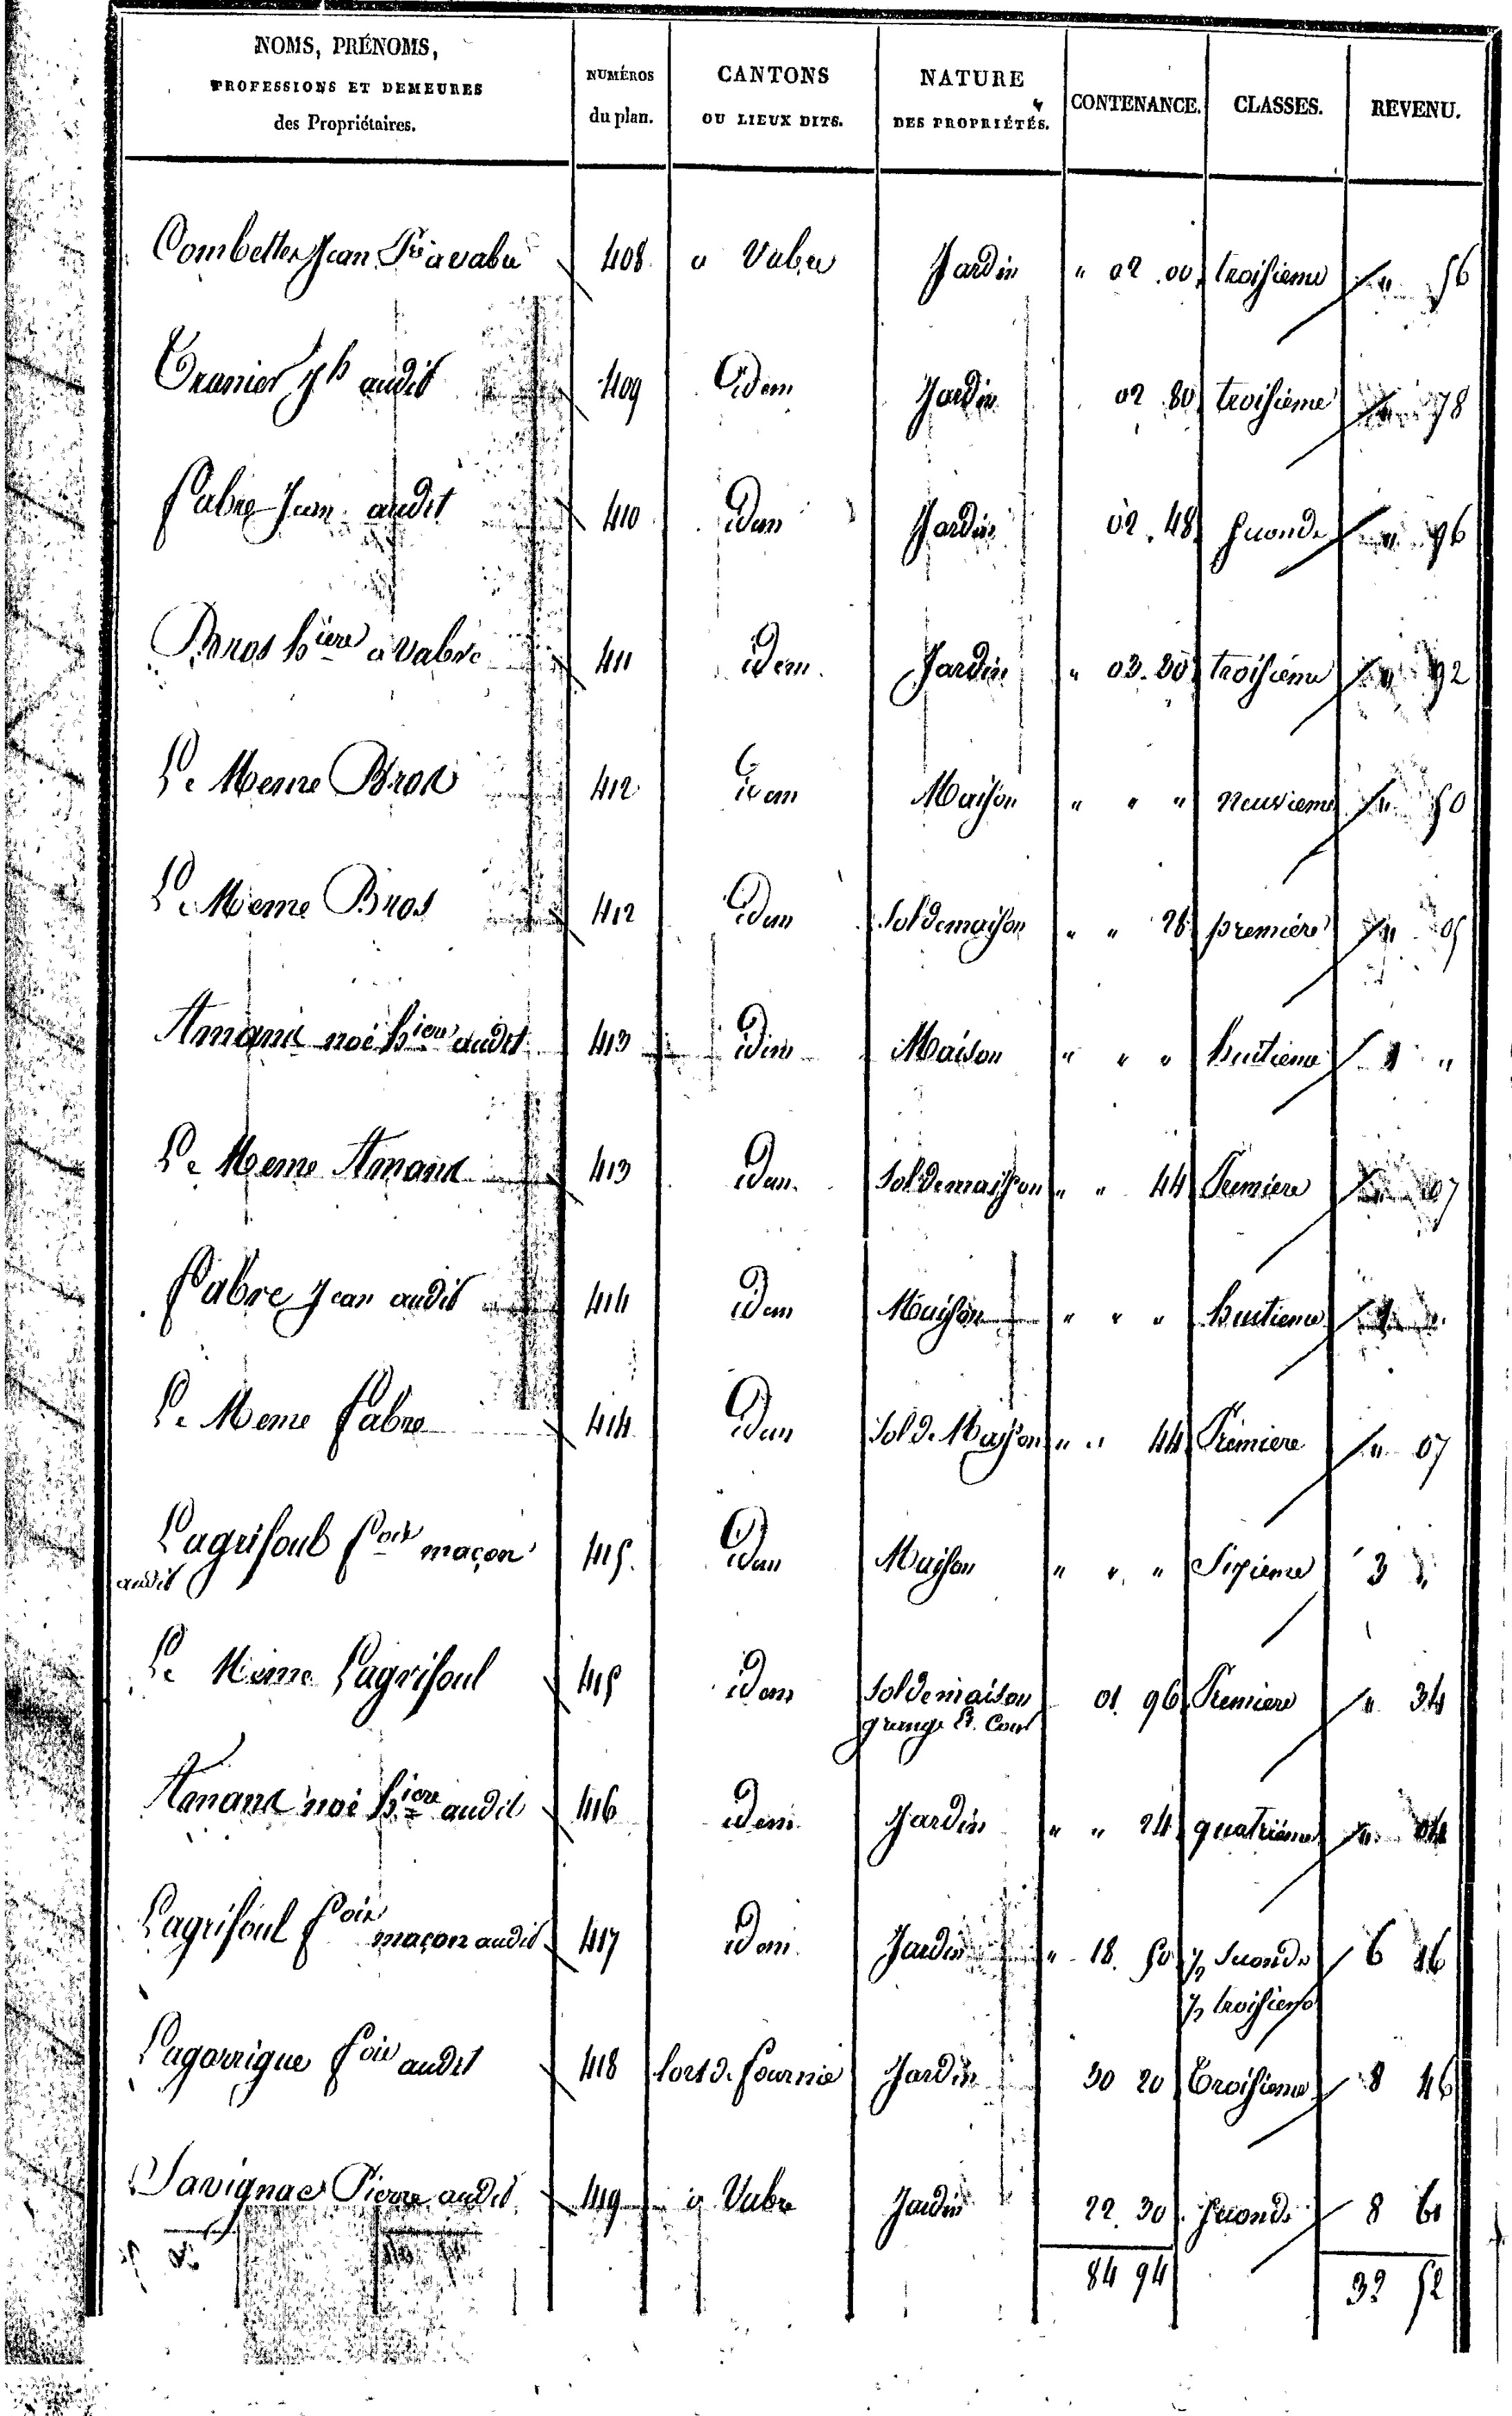 NOMS, PRÉNOMS,
PROFESSIONS ET DEMEURES
des Propriétaires.
NUMÉROS
du plan.
CANTONS
OU LIEUX DITS.
NATURE
DES PROPRIÉTÉS.
CONTENANCE.
CLASSES.
REVENU.
Combettes Jean Pre a vabre 408 a Vabre Jardin " 02 .00 troisieme " 56
Tranier Jh audit 409 Idem Jardin 02 80 troisieme " 78
Fabre Jean audit 410 idem Jardin 02 .48 seconde " 96
Bros hiere a vabre 411 idem Jardin " 03.30 troisieme " 92
Le Meme Bros 412 idem Maison " " " neuvieme " 50
Le Meme Bros 412 idem Sol de maison " " 28 premiere " 05
Amans noé hiere audit 413 idem Maison " " " huitieme 1 "
Le Meme Amans 413 idem Sol de maison " " 44 Premiere " 07
Fabre Jean audit 414 idem Maison " " " huitieme 1 "
Le Meme Fabre 414 idem Sol de Maison " " 44 Premiere " 07
Lagrifoul fois maçon 415 idem Maison " " " Sixieme 3 "
audit
Le Meme Lagrifoul 415 idem Sol de maison 01 96 Premiere " 34
grange et Cour
Amans noé hiere audit 416 idem Jardin " " 24 quatrieme " 04
Lagrifoul fois maçon audit 417 idem Jardin " 18. 50 ½ Seconde 6 16
½ troisieme
Lagarrigue fois audit 418 Jardin 30 20 Troisieme 8 46
Savignac Pierre audit 419 a Vabre Jardin 22.30 seconde 8 61
84 94 32 52